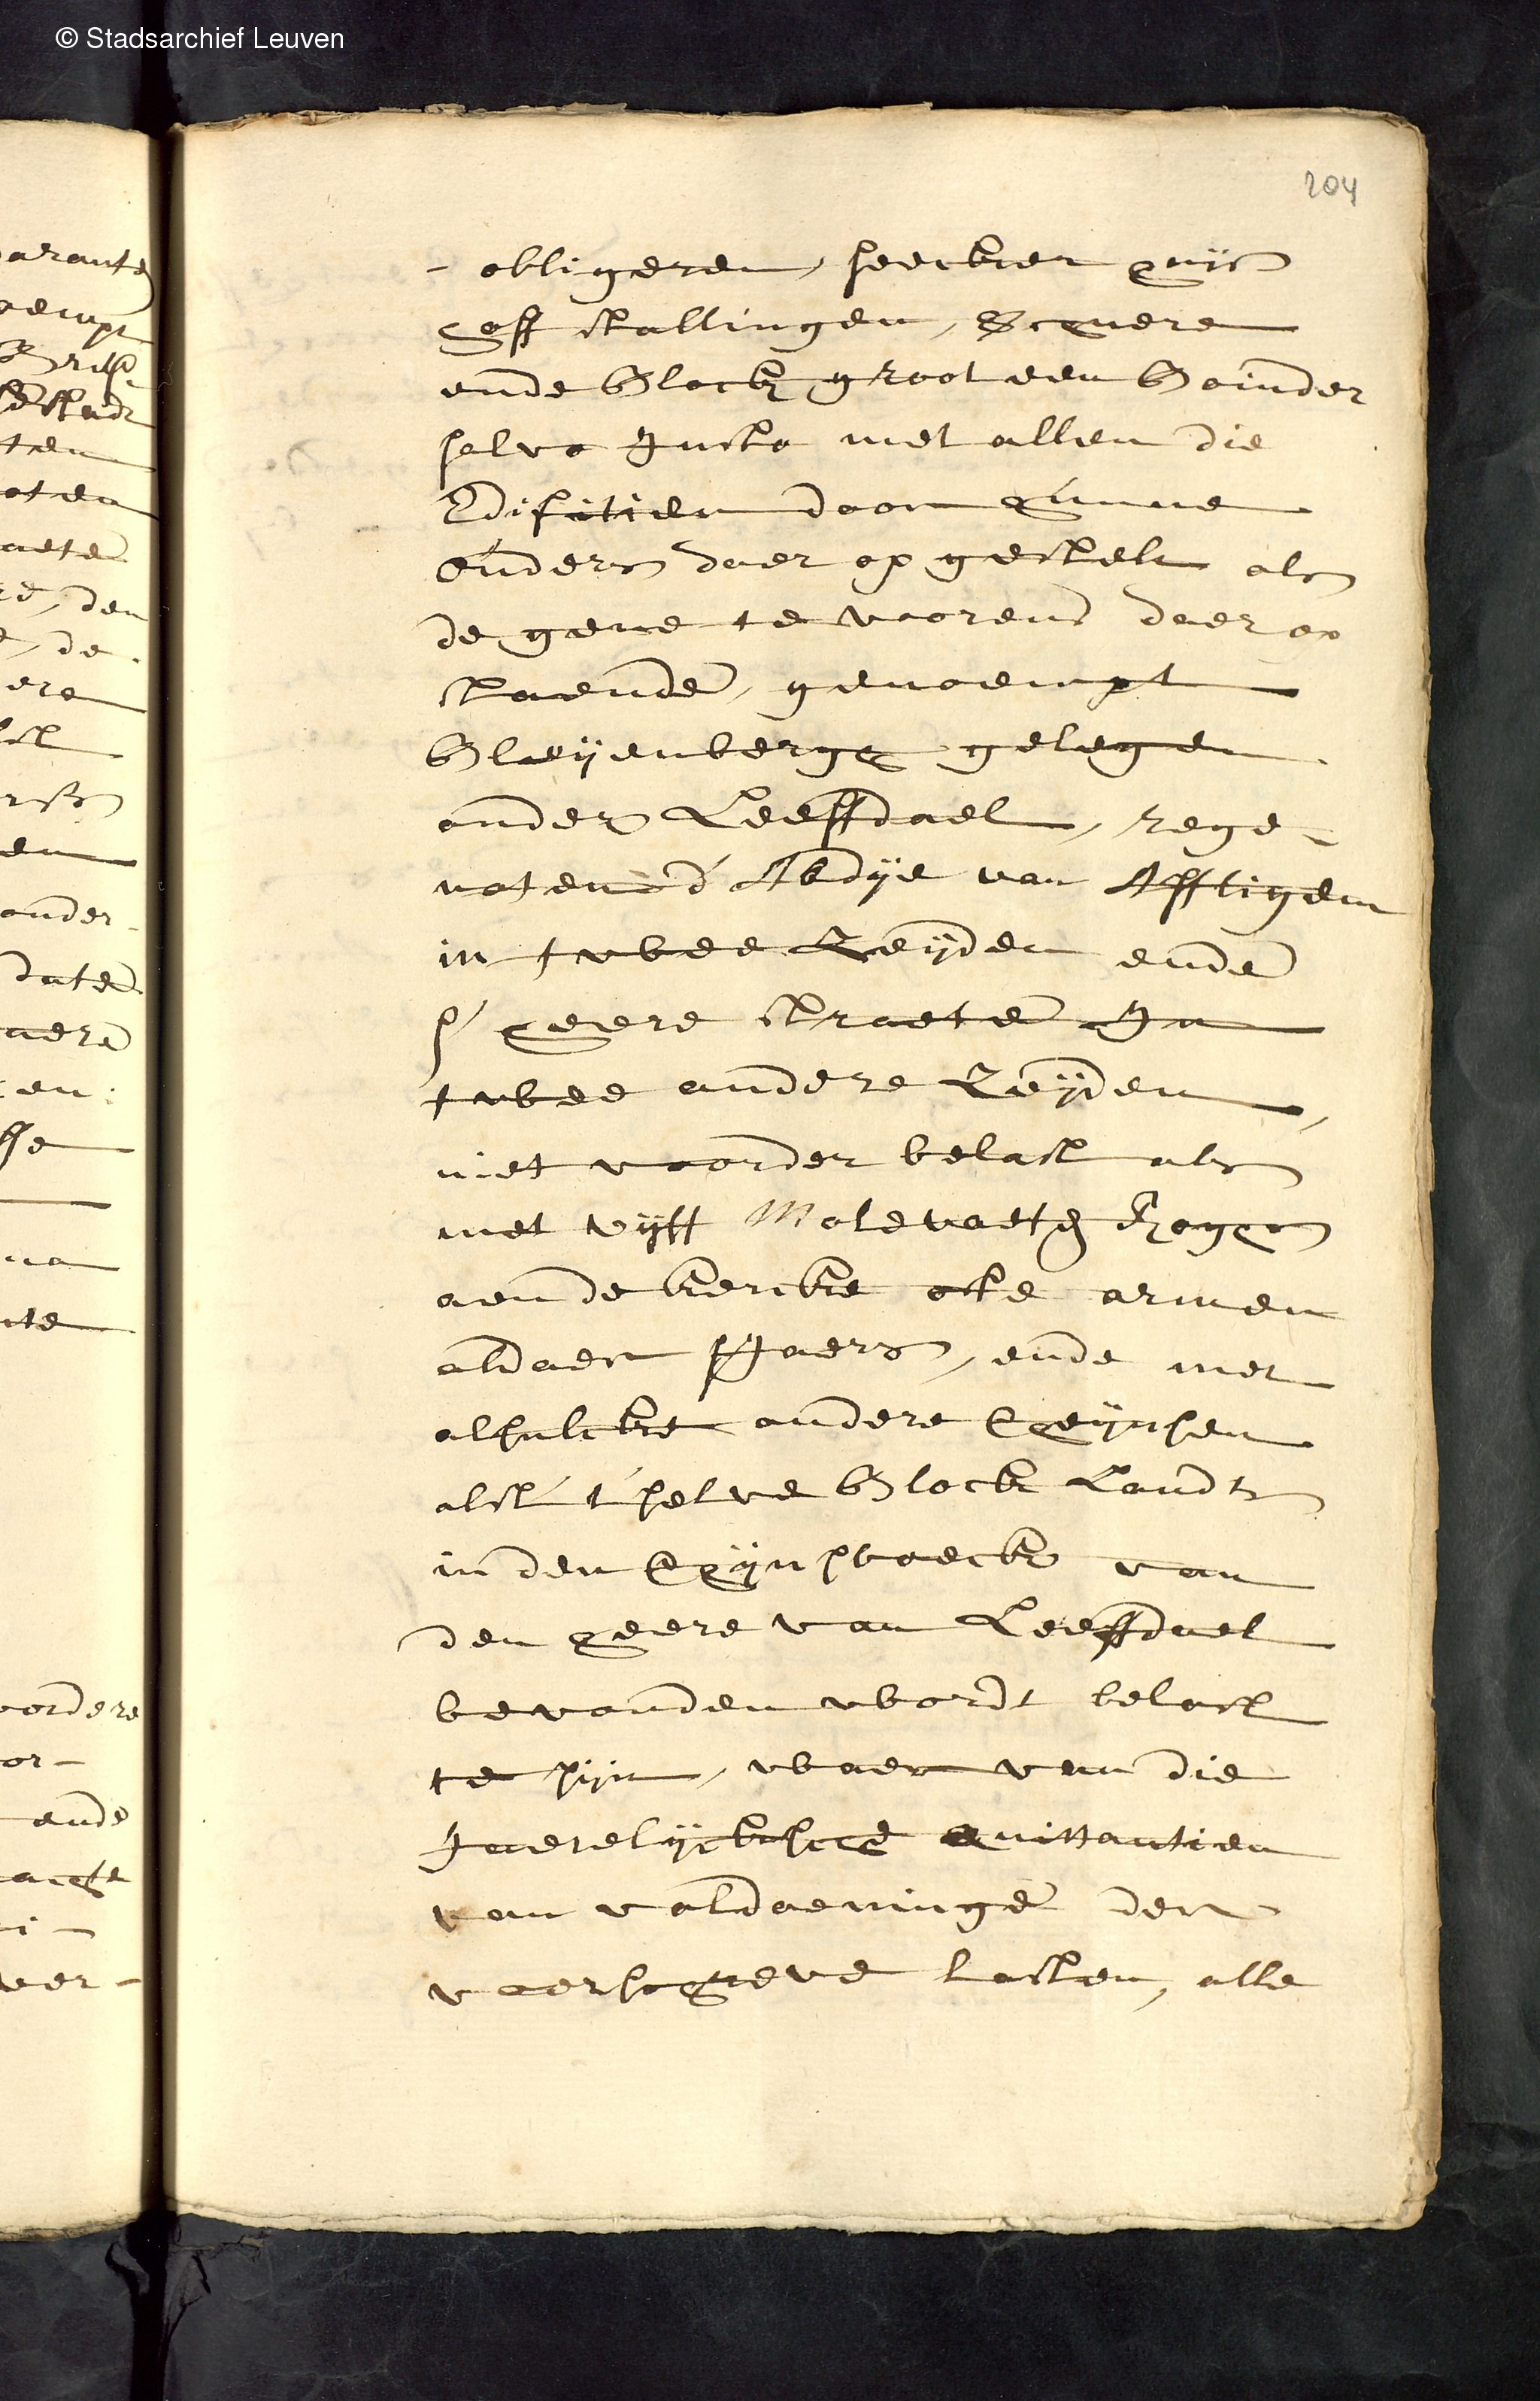 © Stadsarchief Leuven
204
- obligeren, seecker huijs
hoff stallingen, Schuere
ende Block groot een Boinder
salvo Justo met allen die
Edifitien door hunne
ouders daer op gestelt als
de gene te voorens daer op
staende, genoempt
Bleijenbergh gelegen
onder Leeffdael, rege-
noten d' Abdije van Affligem
in twee Zeijden ende
s' heere straete In
twee andere Zeijden,
niet voorder belast als
met vijff Molevaten Rogge
aen de kercke ofte armen
aldaer sJaers, ende met
alsulcke andere Cheijnsen
als t' selve Block Landts
in den Chijnsboeck van
den heere van Leeffdael
bevonden wordt belast
te sijn, waer van die
Jaerelijcksche quittantien
van voldoeninge der
voerschreve lasten, alle